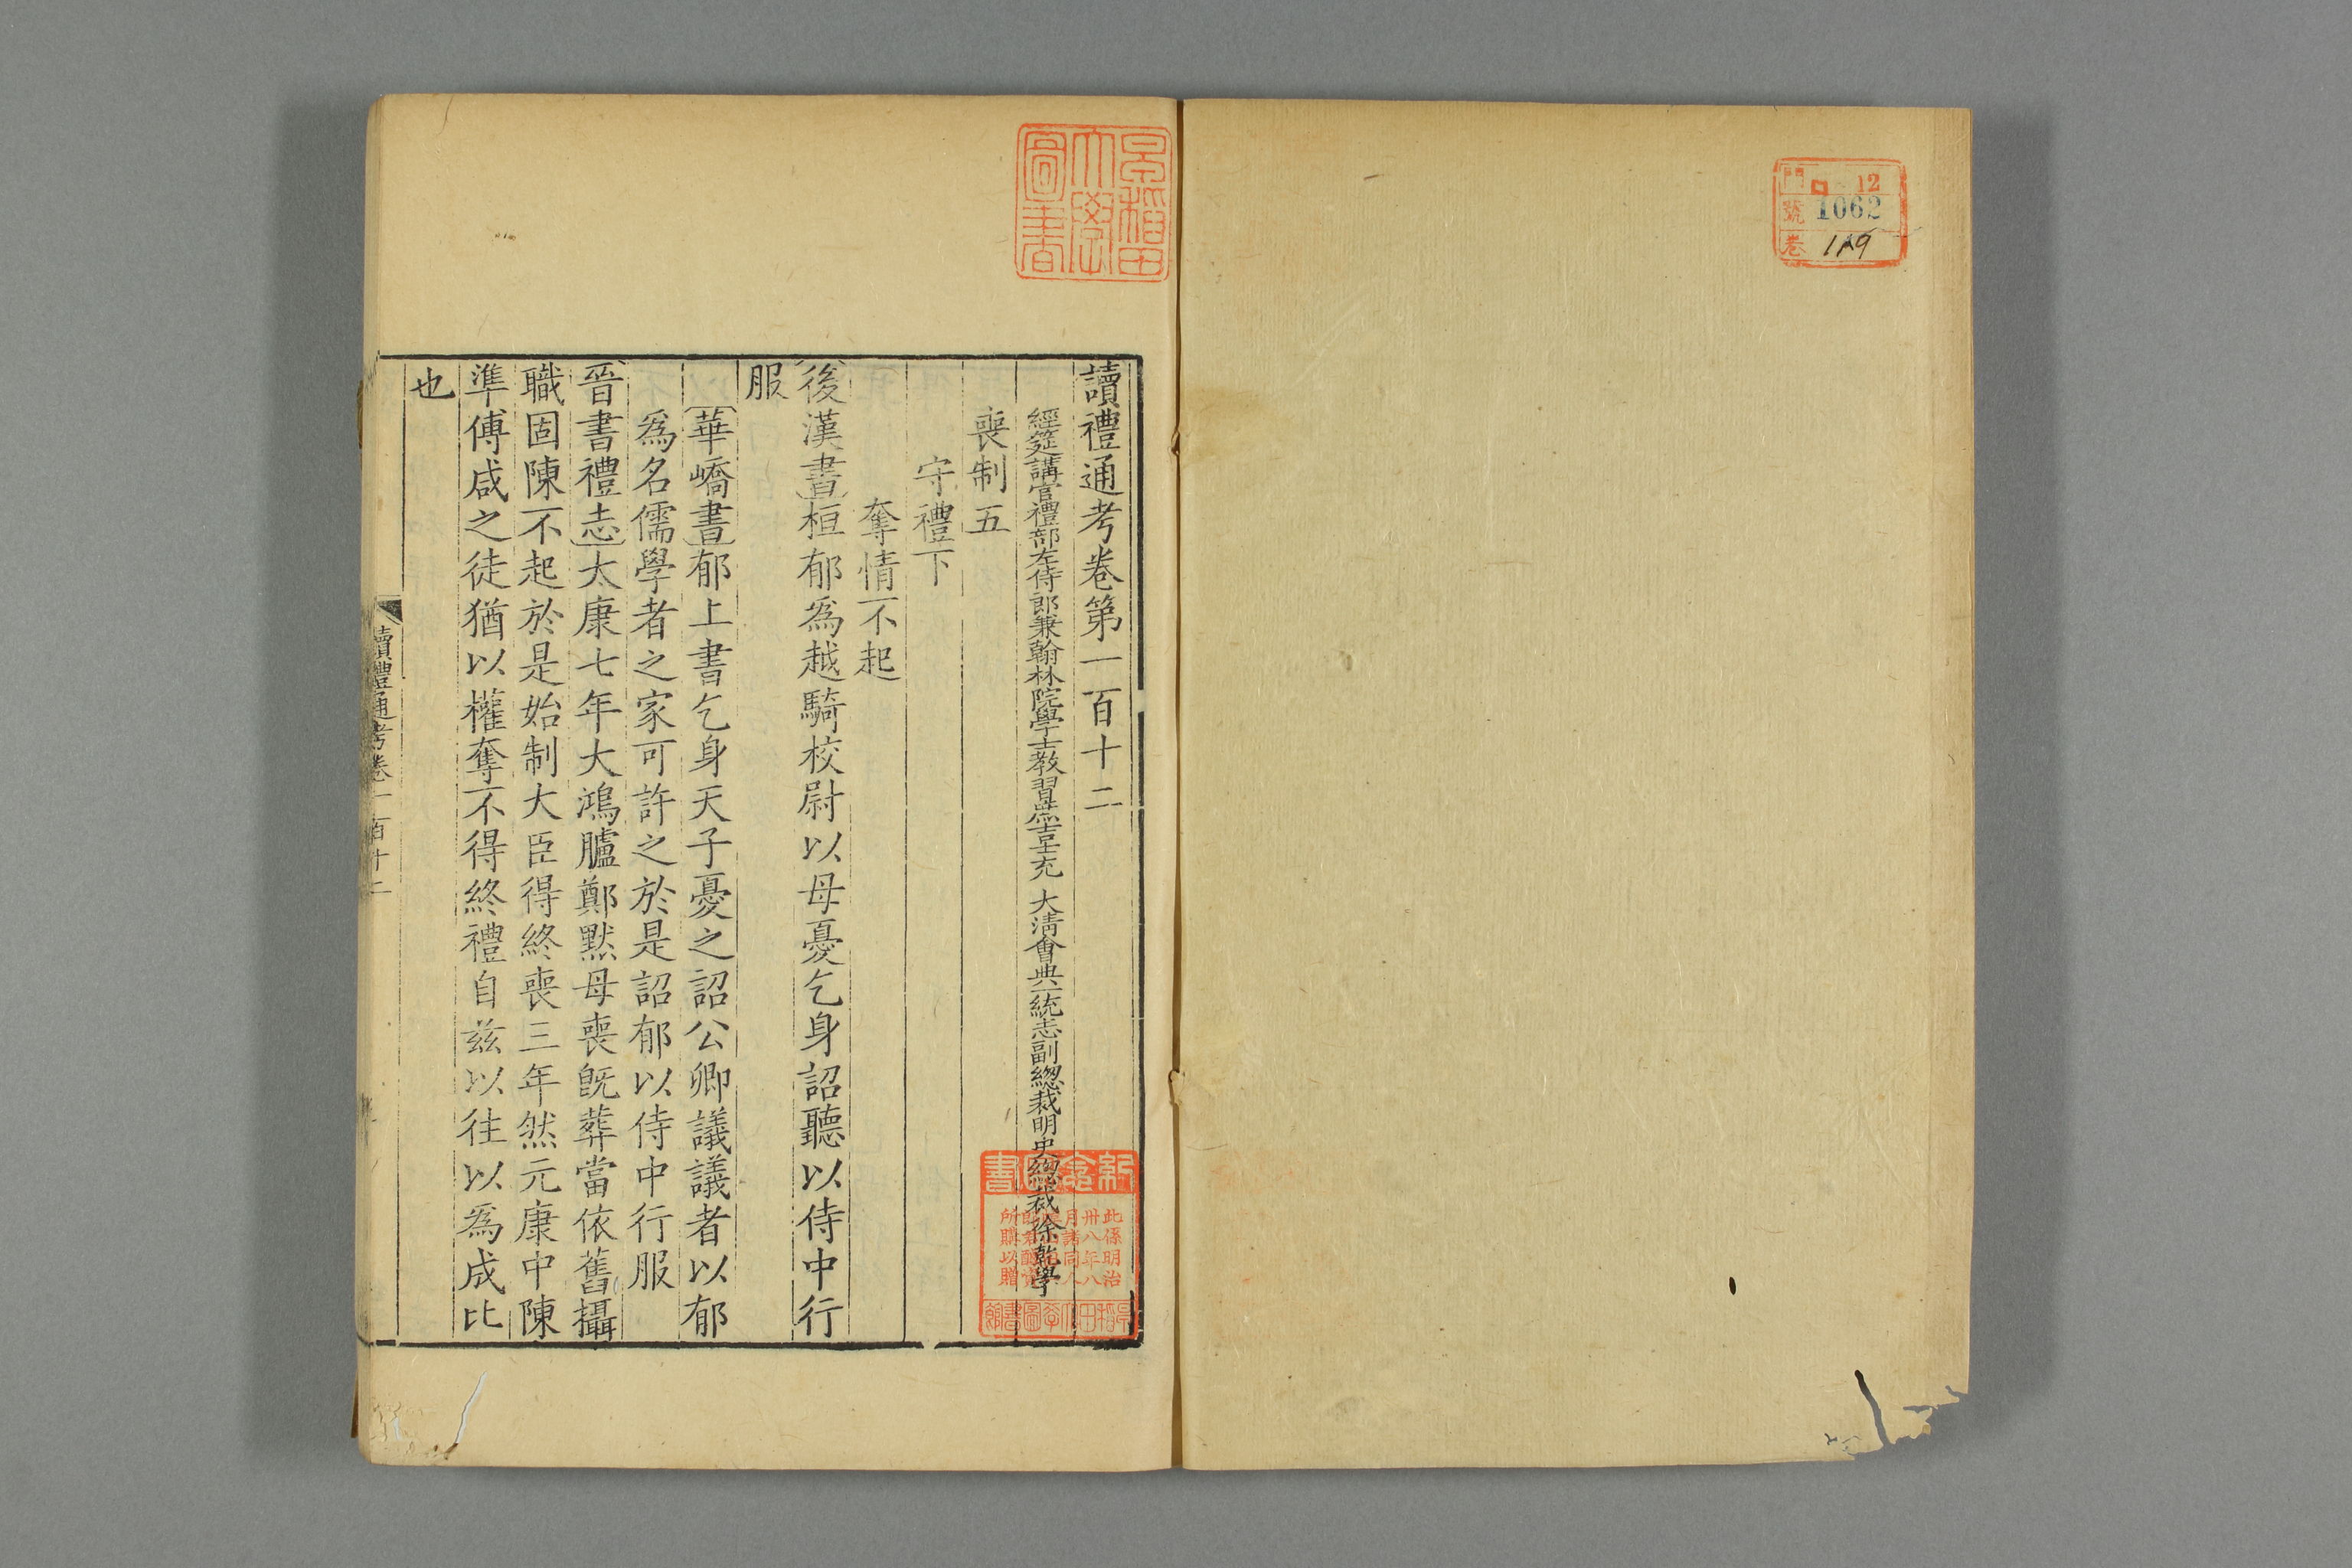 門 ロ 12
號 1062
卷 129
早稻田
大學
圖書
讀禮通考卷第一百十二
經筵講官禮部左侍郎兼翰林院學士教習庶吉士充 大清會典一統志副總裁明史總裁徐乾學
喪制五
守禮下
奪情不起
後漢書桓郁爲越騎校尉以母憂乞身詔聽以侍中行
服
華嶠書郁上書乞身天子憂之詔公卿議議者以郁
爲名儒學者之家可許之於是詔郁以侍中行服
晉書禮志太康七年大鴻臚鄭默母喪既葬當依舊攝
職固陳不起於是始制大臣得終喪三年然元康中陳
準傅咸之徒猶以權奪不得終禮自茲以往以爲成比
也
讀禮通考卷一百十二
此係明治
卅八年八
月諸同人
所購以贈
早稻田大學圖書館